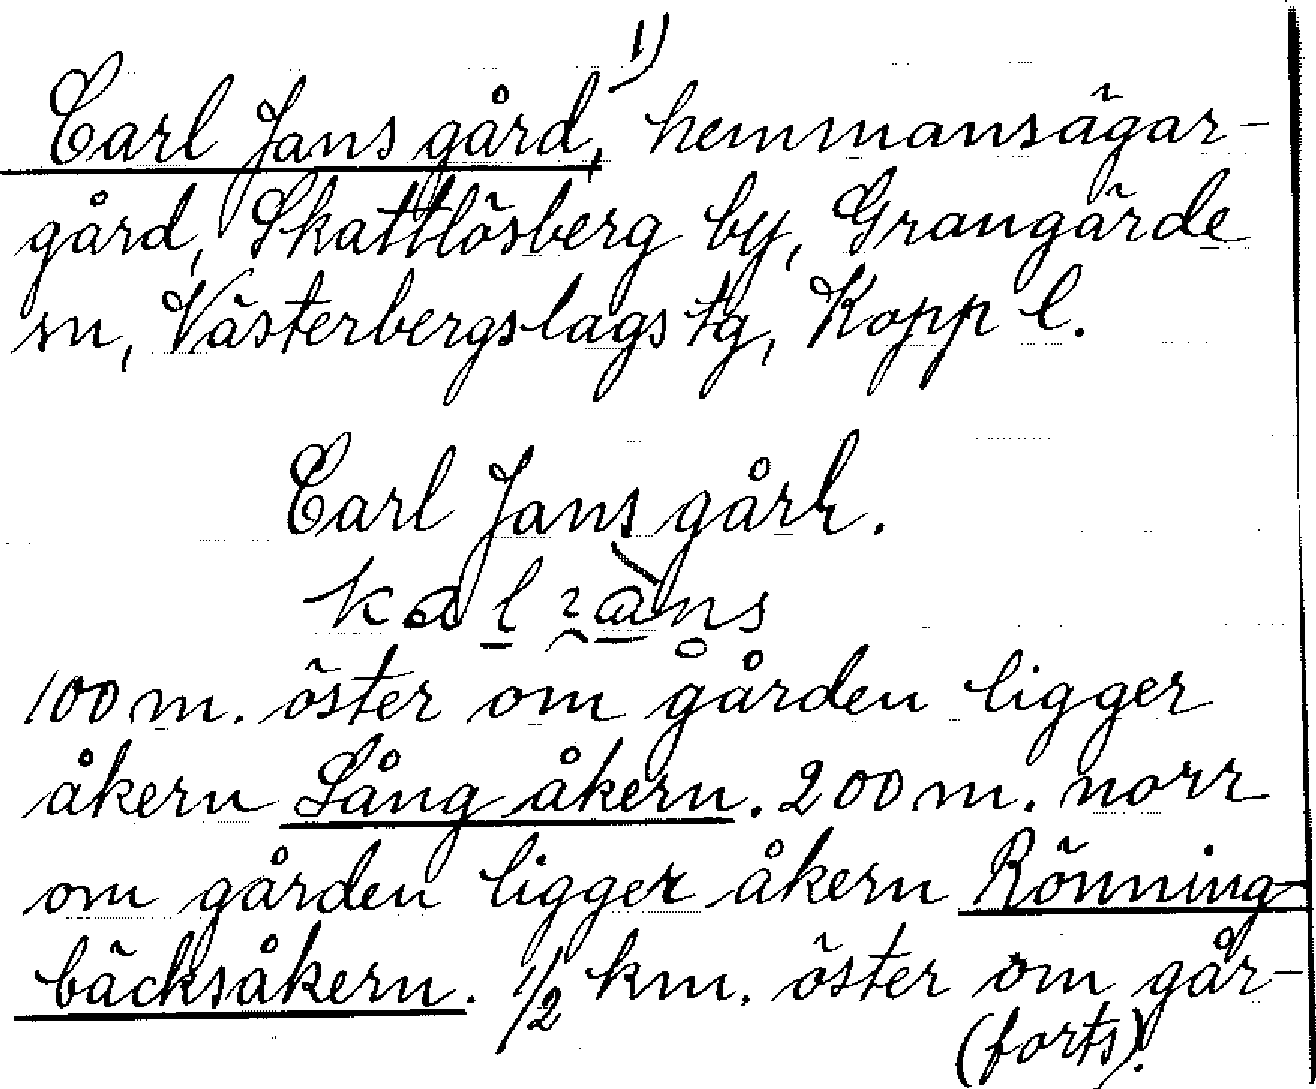 1)
Carl Jans gård, hemmansägar-
gård, Skattlösberg by, Grangärde
sn, Västerbergslags tg, Kopp l.
Carl Jans gård.
100 m. öster om gården ligger
åkern Lång åkern. 200 m. norr
om gården ligger åkern Rönning-
bäcksåkern. 1/2 km. öster om går-
(forts).